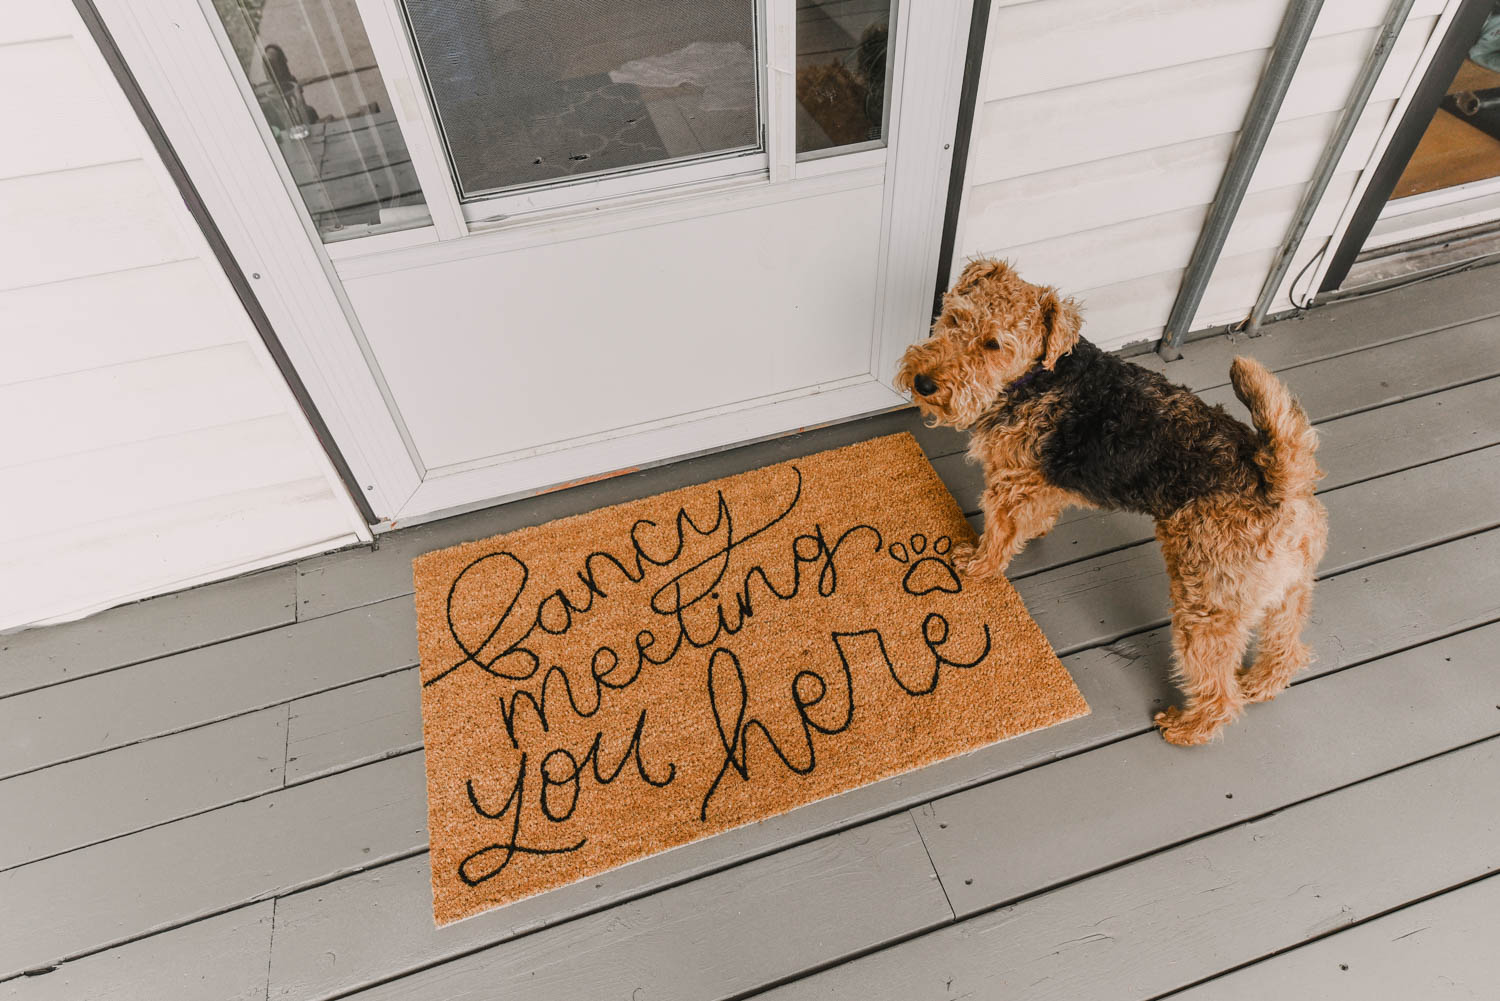 fancy
meeting
you here